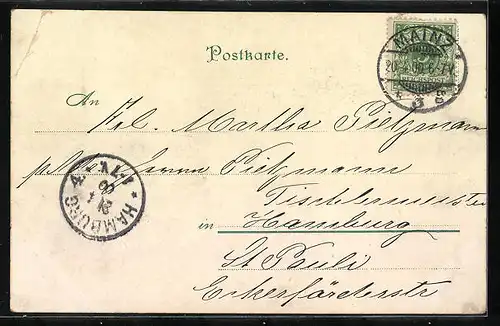 Postkarte.
MAINZ
REICHSPOST
An
Frl. Martha Pietzmann
Herrn Pietzmann
Tischlermeister
in Hamburg
HAMBURG
St Pauli
Eckerförderstr